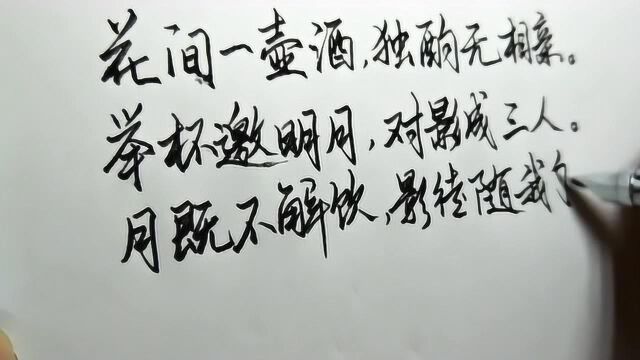 花间一壶酒,独酌无相亲。
举杯邀明月,对影成三人。
月既不解饮,影徒随我